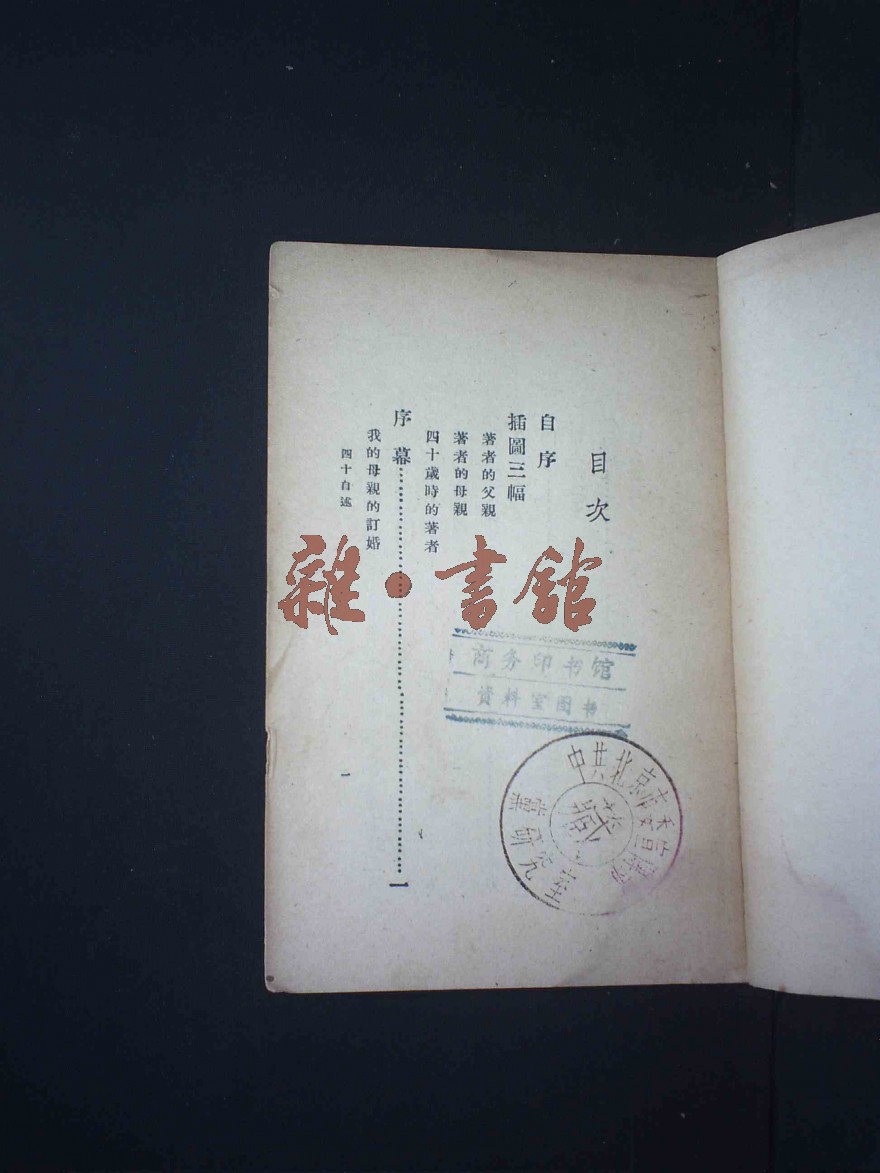 目次
自序
插圖三幅
著者的父親
著者的母親
四十歲時的著者
序幕……一
我的母親的訂婚
四十自述
一
雜·書館
商务印书馆
資料室图书
中共北京市委
藏
業研究室